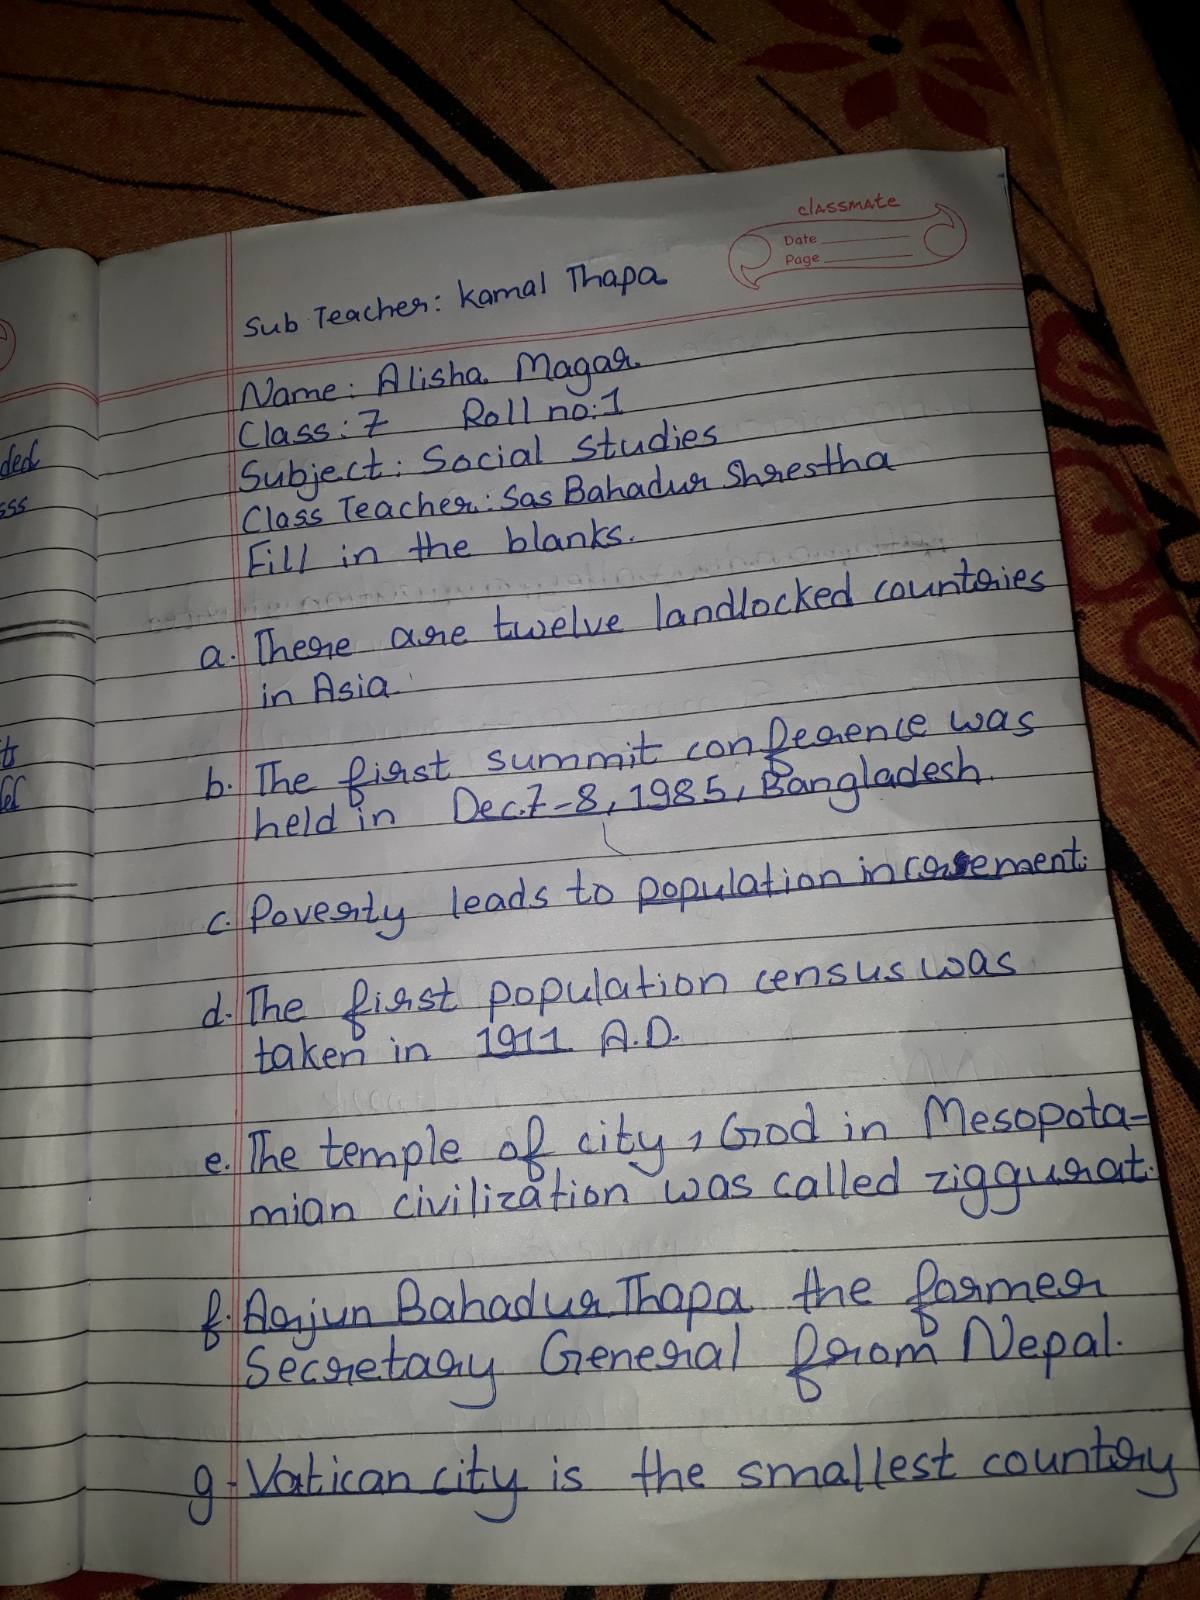 classmate
Date
Page
Sub Teacher: Kamal Thapa
Name: Alisha Magar
Class: 7 Roll no: 1
Subject: Social Studies
Class Teacher: Sas Bahadur Shrestha
Fill in the blanks.
a. There are twelve landlocked countries
in Asia.
b. The first summit conference was
held in Dec. 7-8, 1985, Bangladesh.
c. Poverty leads to population
d. The first population census was
taken in 1911 A.D.
e. The temple of city, God in Mesopota-
mian civilization was called ziggurat.
f. Arjun Bahadur Thapa the former
Secretary General from Nepal.
g. Vatican city is the smallest country
ded
sss